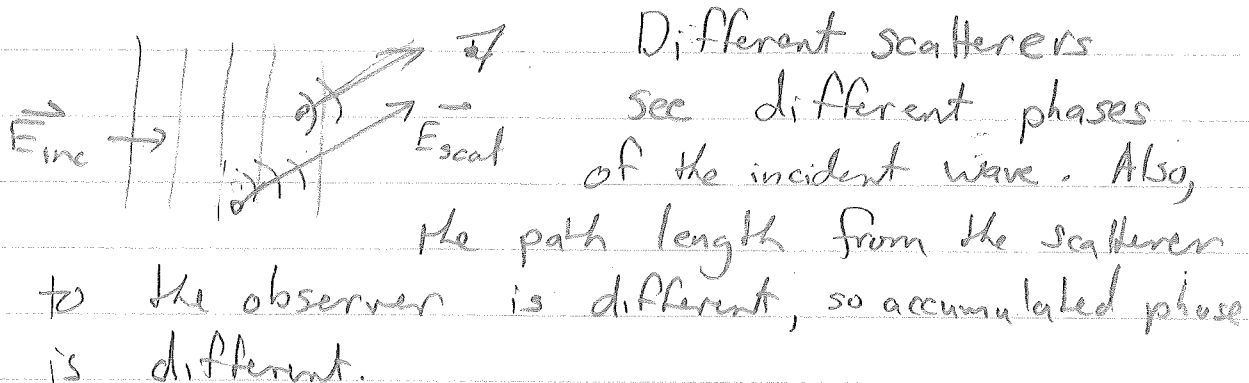 Different scatterers
E inc
E scat
see different phases
of the incident wave. Also,
the path length from the scatterer
to the observer is different, so accumulated phase
is different.